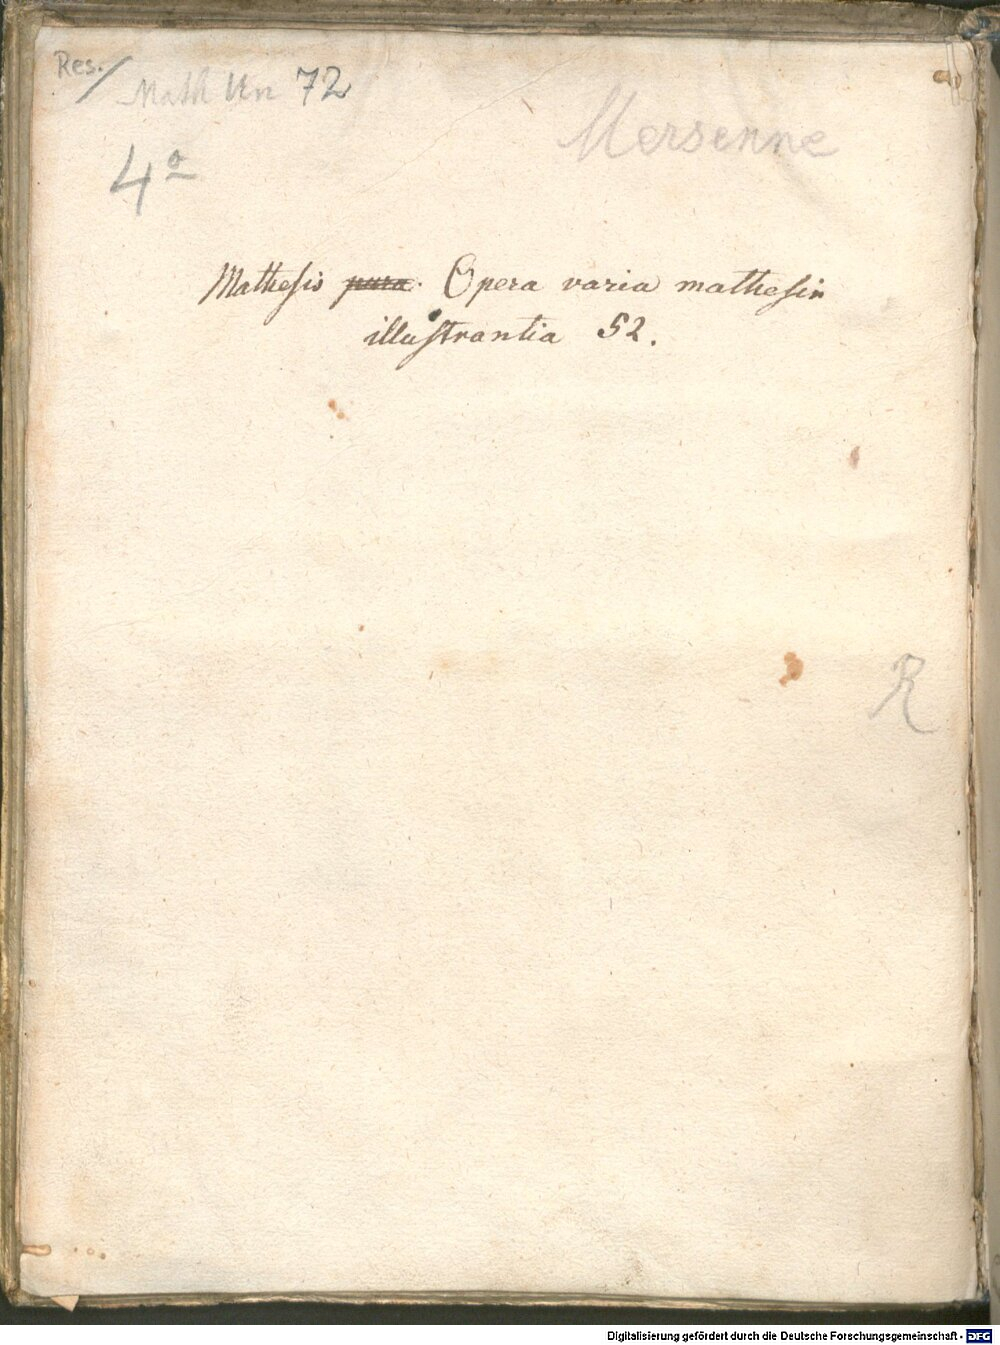 Res./
Math Un 72
4º
Mersenne
Mathesis pura. Opera varia mathesin
illustrantia 52.
R
Digitalisierung gefördert durch die Deutsche Forschungsgemeinschaft - DFG